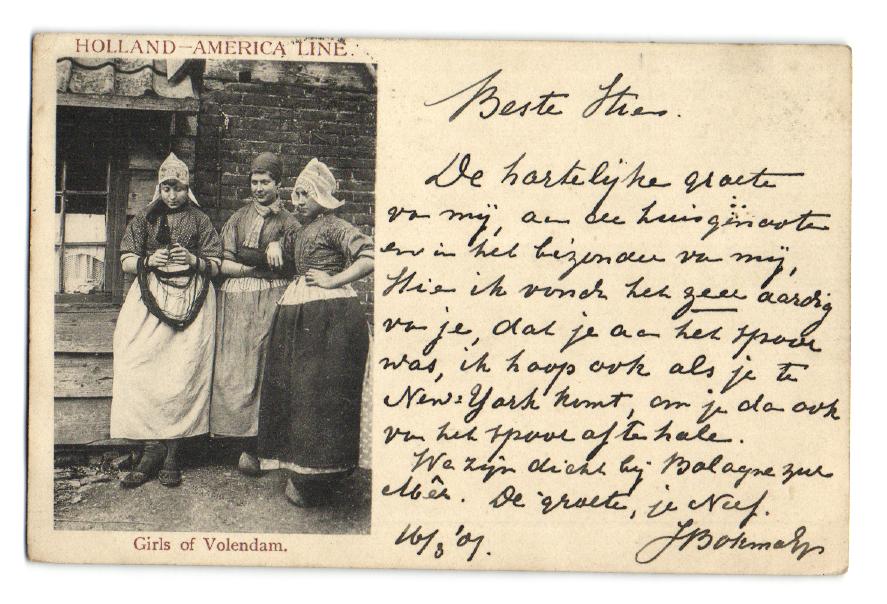 HOLLAND—AMERICA LINE.
Girls of Volendam.
Beste Stien.
De hartelijke groete
va mij, aa de huisgenoote
en in het bizonder va mij,
Stie ik vondt het zeer aardig
va je, dat je aa het spoor
was, ik hoop ook als je te
New=York komt, om je da ook
va het spoor af te hale.
We zijn dicht bij Bologne zur
Mêr. De groete, je Neef.
16/3 '07.